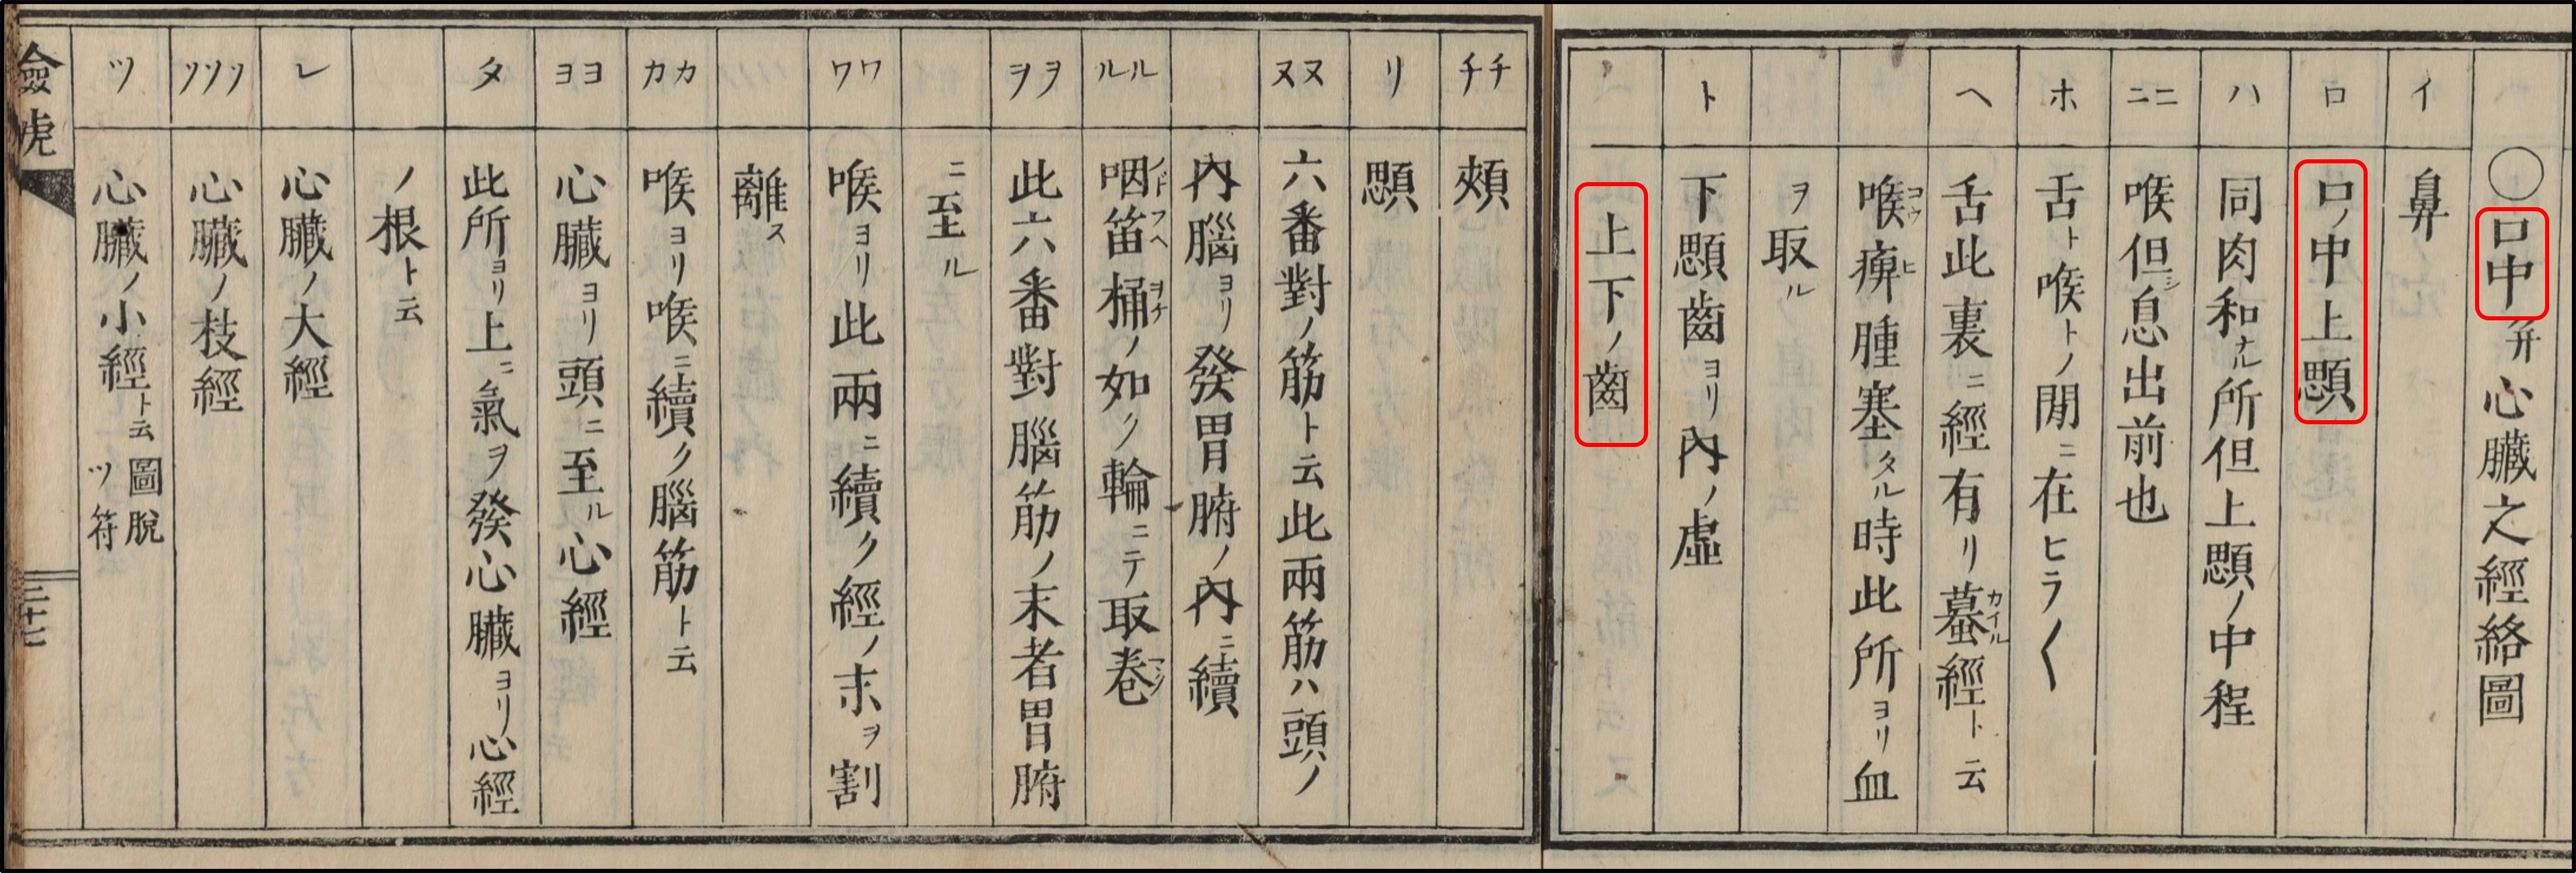 ○口中并心臓之經絡圖
イ 鼻
ロ 口ノ中上顋
ハ 同肉和ナル所但上顋ノ中程
ニニ 喉但シ息出前也
ホ 舌ト喉トノ間ニ在ヒラ〱
ヘ 舌此裏ニ經有リ蟇カイル經ト云
喉コウ痺ヒ腫塞タル時此所ヨリ血
ヲ取ル
ト 下顋齒ヨリ內ノ虛
上下ノ齒
チチ 頰
リ 顋
ヌヌ 六番對ノ筋ト云此兩筋ハ頭ノ
內腦ヨリ發胃腑ノ內ニ續
ルル 咽笛桶ノ如ク輪ニテ取卷
ヲヲ 此六番對腦筋ノ末者胃腑
ニ至ル
ワワ 喉ヨリ此兩ニ續ク經ノ末ヲ割
離ス
カカ 喉ヨリ喉ニ續ク腦筋ト云
ヨヨ 心臓ヨリ頭ニ至ル心經
タ 此所ヨリ上ニ氣ヲ發心臓ヨリ心經
ノ根ト云
レ 心臓ノ大經
ソソソ 心臓ノ枝經
ツ 心臓ノ小經ト云 圖脫
ツ符
三十七